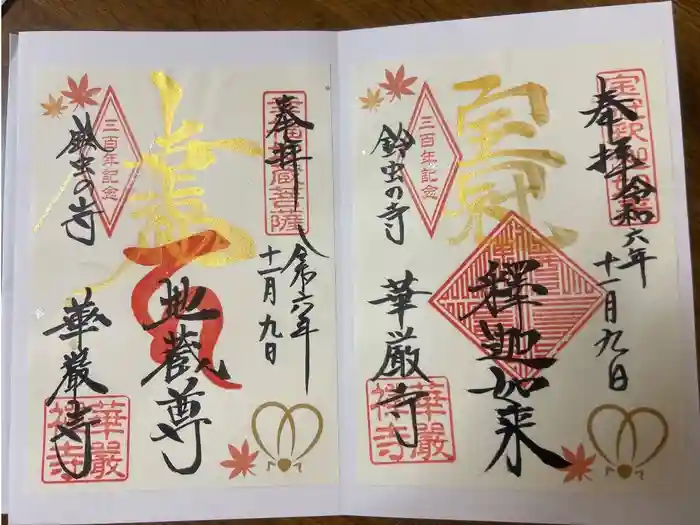 奉拝
令和六年
十一月九日
地蔵尊
三百年記念
鈴虫の寺
華厳寺
華嚴禅寺
奉拝
令和六年
十一月九日
宝冠
釋迦如来
三百年記念
鈴虫の寺
華厳寺
華嚴禅寺